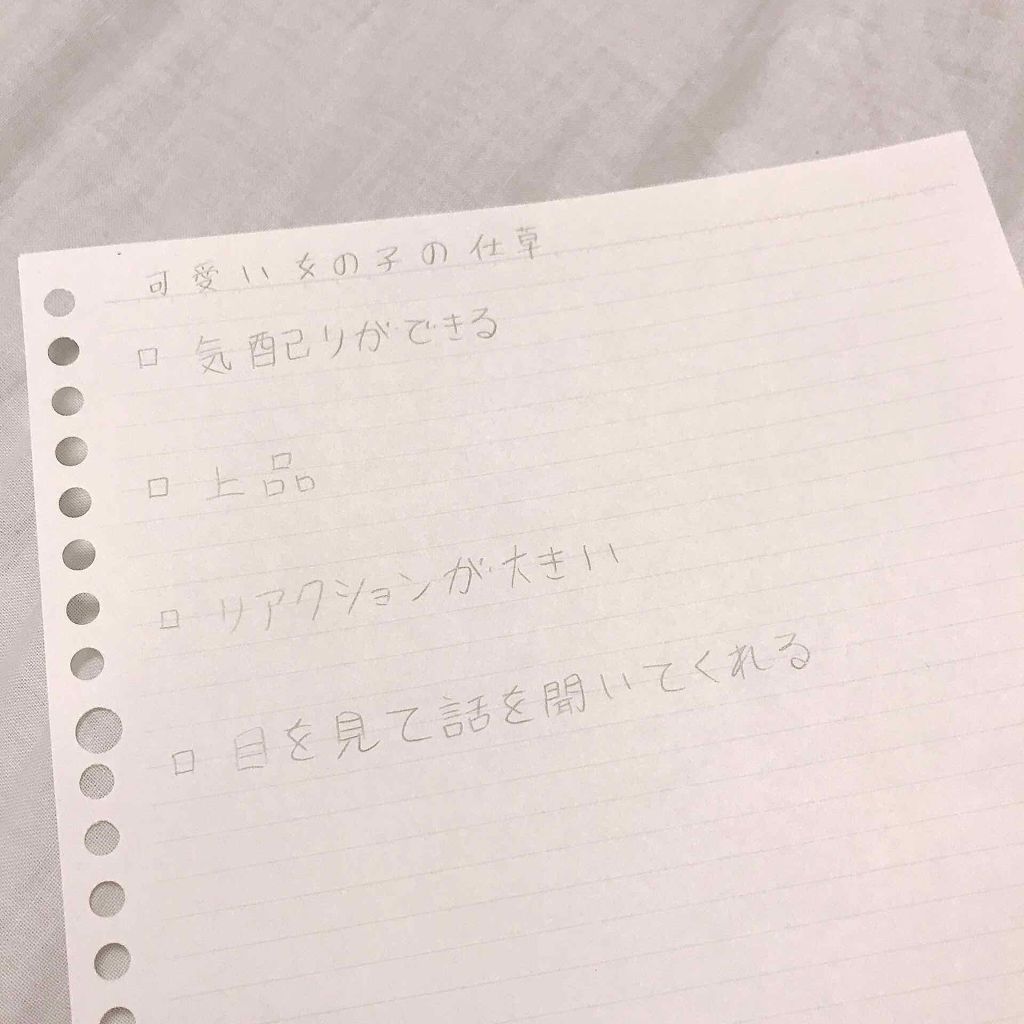 可愛い女の子の仕草
□ 気配りができる
□ 上品
□ リアクションが大きい
□ 目を見て話を聞いてくれる